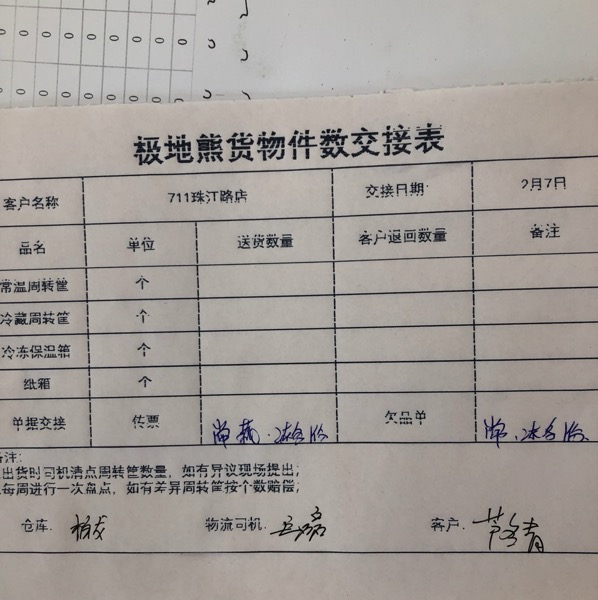 0 0 0 0 0 0 0
0 0 0 0 0 0 0
极地熊货物件数交接表
客户名称 711珠江路店 交接日期: 2月7日
品名 单位 送货数量 客户退回数量 备注
常温周转筐 个
冷藏周转筐 个
冷冻保温箱 个
纸箱 个
单据交接 传票 欠品单
备注:
出货时司机清点周转筐数量，如有异议现场提出;
每周进行一次盘点，如有差异周转筐按个数赔偿;
仓库: 物流司机: 客户: